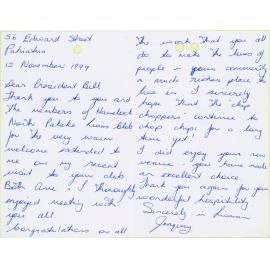 56 Edward Street
Pahiatua
12 November 1999
Dear President Bill
Thank you to you and
The members of Havelock
North Pakeke Lions Club
for the very warm
welcome extended to
me on my recent
visit to your club
Both Anne & I Thoroughly
enjoyed meeting with
you all.
Congratulations on all
The work That you all
do to make the lives of
people in your community
a much richer place to
live in. I sincerely
hope That the "chip
choppers" continue to
chop chips for a long
time yet!
I did enjoy your new
venue - you have made
an excellent choice
Thank you again for your
wonderful hospitality
Sincerely in Lionism